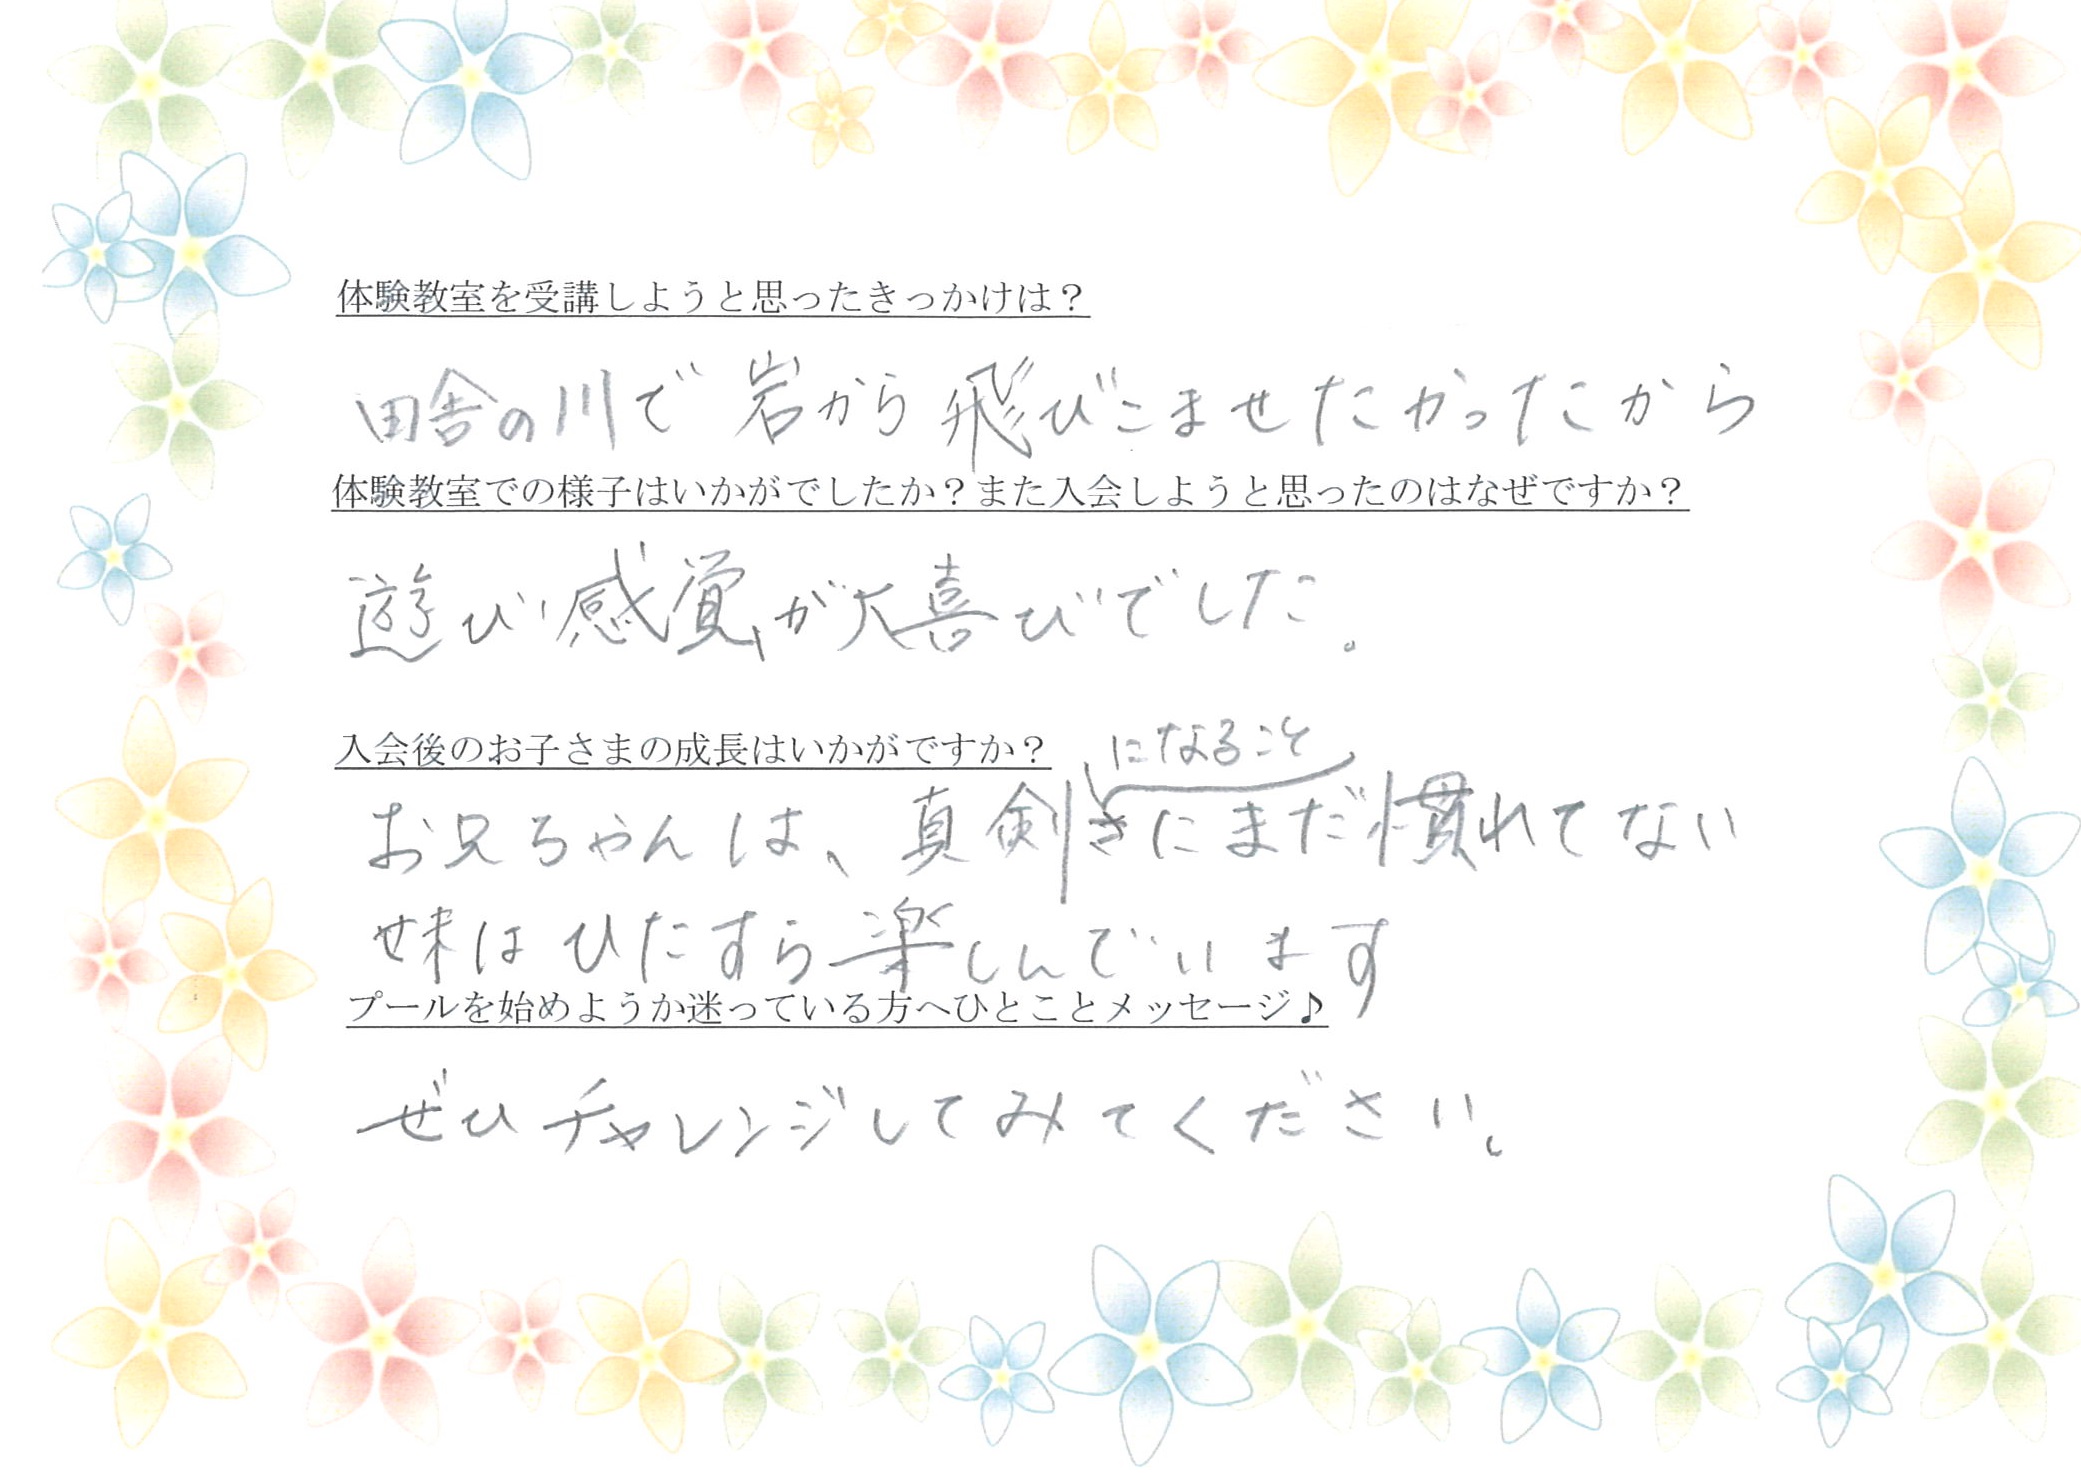 体験教室を受講しようと思ったきっかけは？
田舎の川で岩から飛びこませたかったから
体験教室での様子はいかがでしたか？また入会しようと思ったのはなぜですか？
遊び感覚が大喜びでした。
入会後のお子さまの成長はいかがですか？
になること
お兄ちゃんは、真剣さにまだ慣れてない
妹はひたすら楽しんでいます
プールを始めようか迷っている方へひとことメッセージ♪
ぜひチャレンジしてみてください。